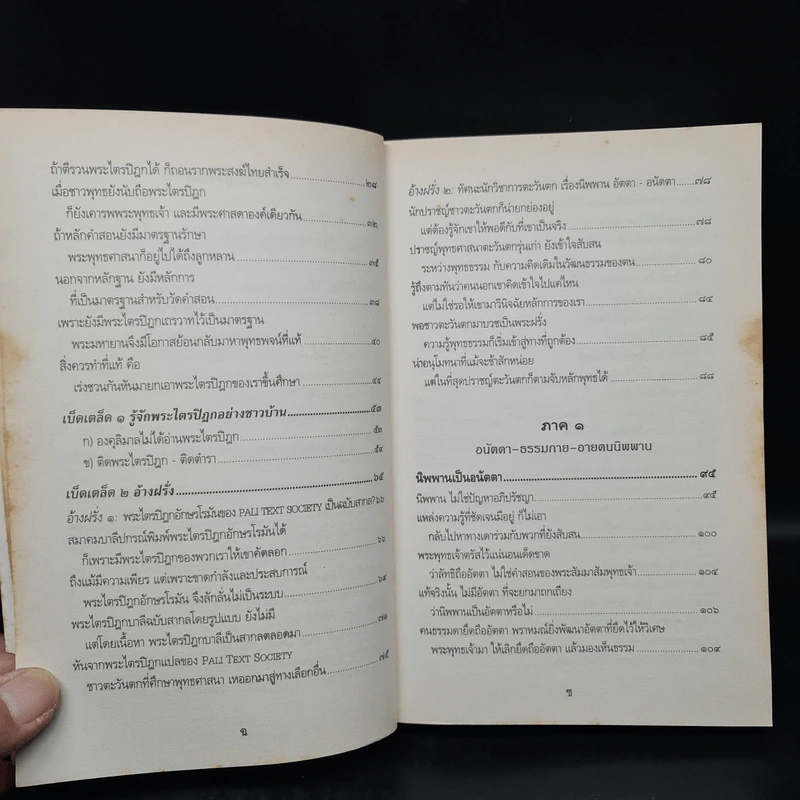 ถ้าตีรวนพระไตรปิฎกได้ ก็ถอนรากพระสงฆ์ไทยสำเร็จ.................๒๘
เมื่อชาวพุทธยังนับถือพระไตรปิฎก
ก็ยังเคารพพระพุทธเจ้า และมีพระศาสดาองค์เดียวกัน.................๓๒
ถ้าหลักคำสอนยังมีมาตรฐานรักษา
พระพุทธศาสนาก็อยู่ไปได้ถึงลูกหลาน.................๓๕
นอกจากหลักฐาน ยังมีหลักการ
ที่เป็นมาตรฐานสำหรับวัดคำสอน.................๓๘
เพราะยังมีพระไตรปิฎกเถรวาทไว้เป็นมาตรฐาน
พระมหายานจึงมีโอกาสย้อนกลับมาหาพุทธพจน์ที่แท้.................๔๐
สิ่งควรทำที่แท้ คือ
เร่งชวนกันหันมายกเอาพระไตรปิฎกของเราขึ้นศึกษา.................๔๔
เบ็ดเตล็ด ๑ รู้จักพระไตรปิฎกอย่างชาวบ้าน.................๕๓
ก) องคุลิมาลไม่ได้อ่านพระไตรปิฎก.................๕๓
ข) ติดพระไตรปิฎก - ติดตำรา.................๕๙
เบ็ดเตล็ด ๒ อ้างฝรั่ง.................๖๕
อ้างฝรั่ง ๑: พระไตรปิฎกอักษรโรมันของ PALI TEXT SOCIETY เป็นฉบับสากล?๖๖
สมาคมบาลีปกรณ์พิมพ์พระไตรปิฎกอักษรโรมันได้
ก็เพราะมีพระไตรปิฎกของพวกเราให้เขาคัดลอก.................๖๖
ถึงแม้มีความเพียร แต่เพราะขาดกำลังและประสบการณ์
พระไตรปิฎกอักษรโรมัน จึงลักลั่นไม่เป็นระบบ.................๖๙
พระไตรปิฎกบาลีฉบับสากลโดยรูปแบบ ยังไม่มี
แต่โดยเนื้อหา พระไตรปิฎกบาลีเป็นสากลตลอดมา.................๗๑
หันจากพระไตรปิฎกแปลของ PALI TEXT SOCIETY
ชาวตะวันตกที่ศึกษาพุทธศาสนา เหออกมาสู่ทางเลือกอื่น.................๗๕
ฉ
อ้างฝรั่ง ๒: ทัศนะนักวิชาการตะวันตก เรื่องนิพพาน อัตตา - อนัตตา.......๗๘
นักปราชญ์ชาวตะวันตกก็น่ายกย่องอยู่
แต่ต้องรู้จักเขาให้พอดีกับที่เขาเป็นจริง.................๗๘
ปราชญ์พุทธศาสนาตะวันตกรุ่นเก่า ยังเข้าใจสับสน
ระหว่างพุทธธรรม กับความคิดเดิมในวัฒนธรรมของตน.................๘๐
รู้ถึงตามทันว่าคนนอกเขาคิดเข้าใจไปแค่ไหน
แต่ไม่ใช่รอให้เขามาวินิจฉัยหลักการของเรา.................๘๔
พอชาวตะวันตกมาบวชเป็นพระฝรั่ง
ความรู้พุทธธรรมก็เริ่มเข้าสู่ทางที่ถูกต้อง.................๘๕
น่าอนุโมทนาที่แม้จะช้าสักหน่อย
แต่ในที่สุดปราชญ์ตะวันตกก็ตามจับหลักพุทธได้.................๘๘
ภาค ๑
อนัตตา-ธรรมกาย-อายตนนิพพาน
นิพพานเป็นอนัตตา.................๙๕
นิพพาน ไม่ใช่ปัญหาอภิปรัชญา.................๙๕
แหล่งความรู้ที่ชัดเจนมีอยู่ ก็ไม่เอา
กลับไปหาทางเดาร่วมกับพวกที่ยังสับสน.................๑๐๐
พระพุทธเจ้าตรัสไว้แน่นอนเด็ดขาด
ว่าลัทธิถืออัตตา ไม่ใช่คำสอนของพระสัมมาสัมพุทธเจ้า.................๑๐๔
แท้จริงนั้น ไม่มีอัตตา ที่จะยกมาถกเถียง
ว่านิพพานเป็นอัตตาหรือไม่.................๑๐๖
คนธรรมดายึดถืออัตตา พราหมณ์ยิ่งพัฒนาอัตตาที่ยึดไว้ให้วิเศษ
พระพุทธเจ้ามา ให้เลิกยึดถืออัตตา แล้วมองเห็นธรรม.................๑๐๙
ช